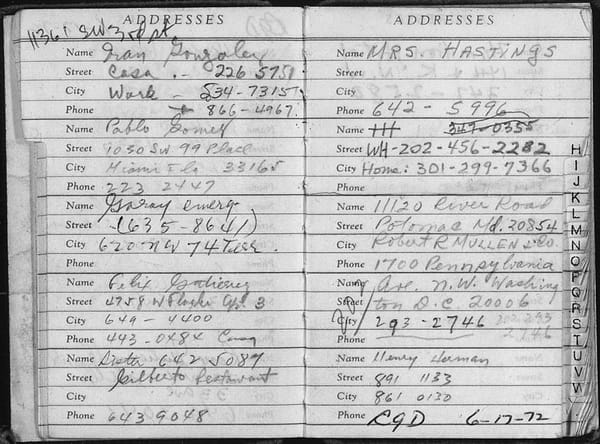 ADDRESSES
11361 SW 3rd St.
Name Gonzalez
Street Casa .- 226 5751
City Work - 534-7315
Phone 866-4967
Name Pablo Gomez
Street 1030 SW 99 Place
City Miami Fla 33165
Phone 223 2447
Name Garay emerg.
Street (635-8641)
City 620 NW 74
Phone
Name Felix Gutierrez
Street 4758 W Flagler 3
City 649-4400
Phone 443-0484
Name 642 5087
Street Gilberto Restaurant
City
Phone 643 9048
ADDRESSES
Name MRS. HASTINGS
Street
City
Phone 642 - 5996
Name HH 347-0355
Street WH-202-456-2282
City Home: 301-299-7366
Phone
Name 11120 River Road
Street Potomac Md. 20854
City Robert R MULLEN & Co.
Phone 1700 Pennsylvania
Name Av. N.W. Washing
Street ton D.C. 20006
City 293-2746 202 293
Phone 2746
Name Henry
Street 891 1133
City 861 0130
Phone 6-17-72
H
I
J
K
L
M
N
O
P
Q
R
S
T
U
V
W